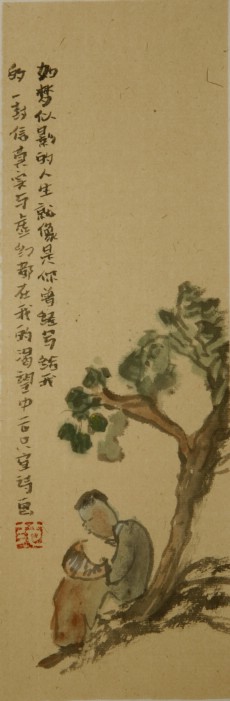 如梦似影的人生就像是你曾经写给我
的一封信真实与虚幻都在我的渴望中